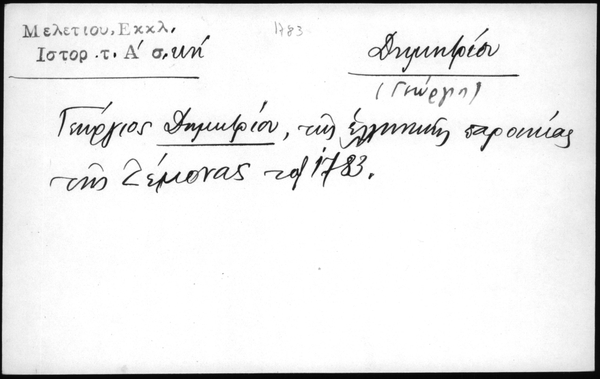 Μελετιου, Εκκλ.
Ιστορ. τ. Α΄ σ. κή
1783
Δημητρίου
(Γεώργιος)
Γεώργιος Δημητρίου, τῆς ἑλληνικῆς παροικίας
τῆς Ζέμονας τοῦ 1783.